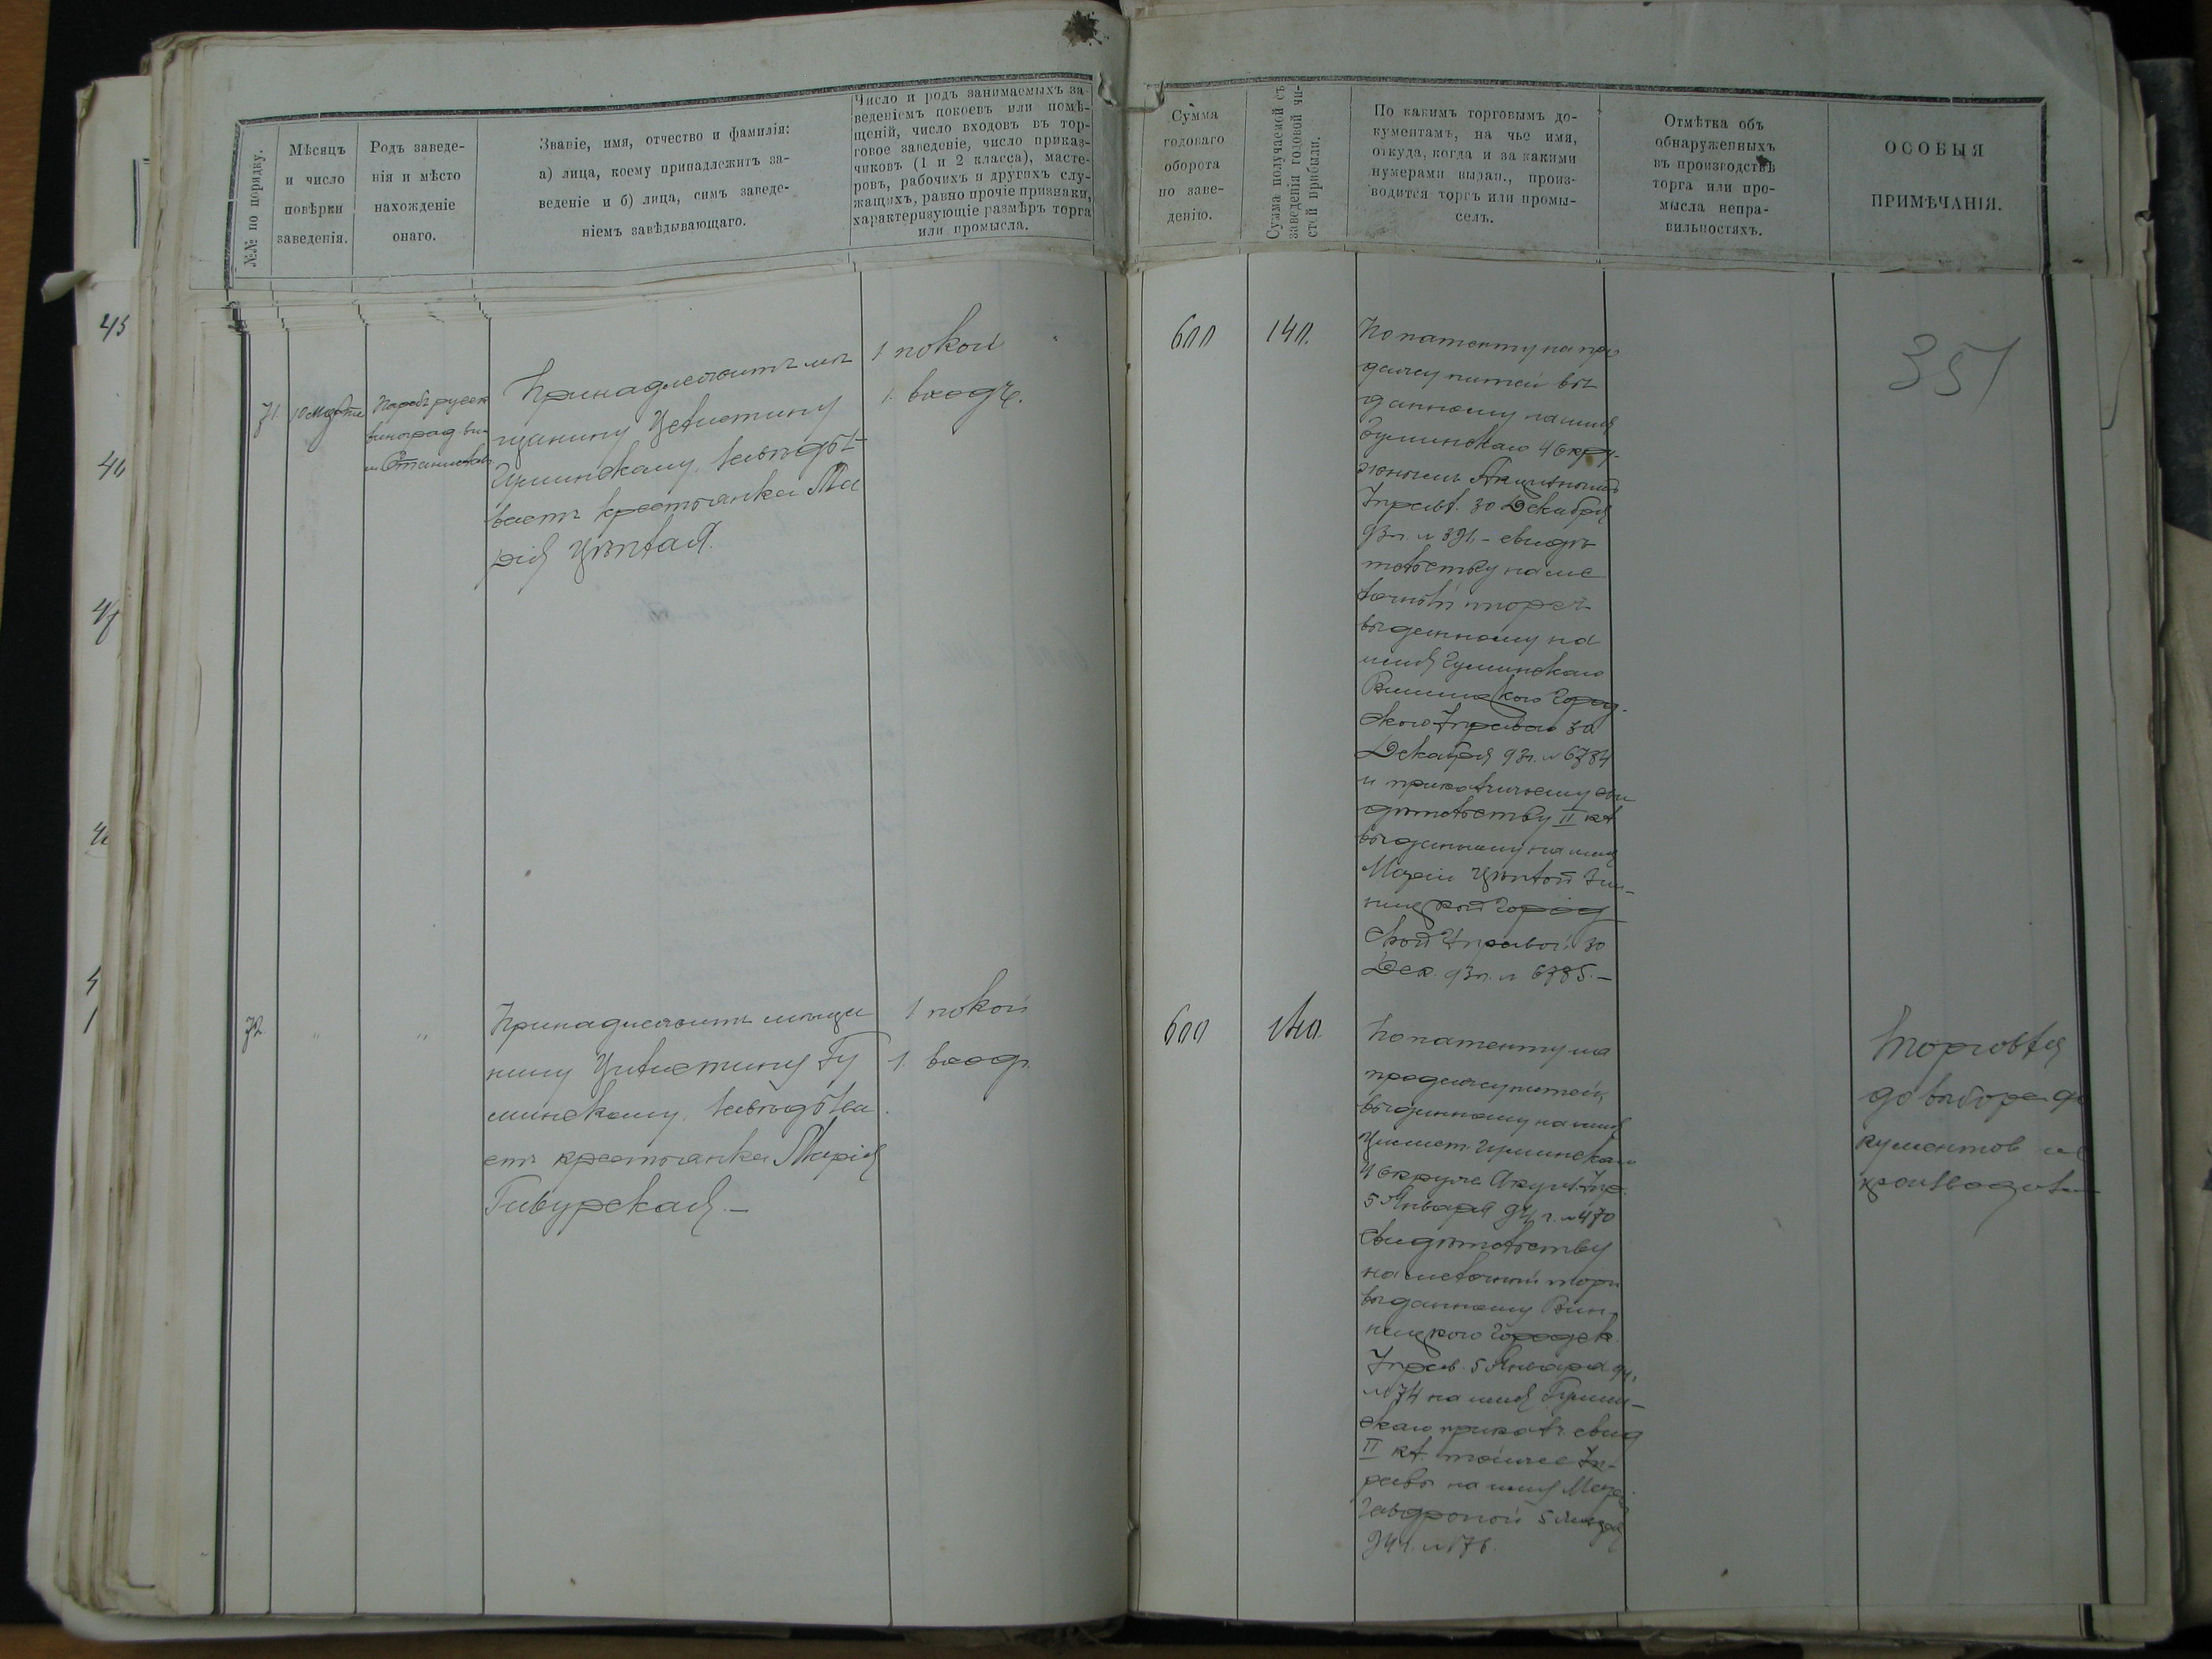 №№ по порядку.
Мѣсяцъ
и число
повѣрки
заведенія.
Родъ заведе-
нія и мѣсто
нахожденіе
онаго.
Званіе, имя, отчество и фамилія:
а) лица, коему принадлежитъ за-
веденіе и б) лица, симъ заведе-
ніемъ завѣдывающаго.
Число и родъ занимаемыхъ за-
веденіемъ покоевъ или помѣ-
щеній, число входовъ въ тор-
говое заведеніе, число приказ-
чиковъ (1 и 2 класса), масте-
ровъ, рабочихъ и другихъ слу-
жащихъ, равно прочіе признаки,
характеризующіе размѣръ торга
или промысла.
Сумма
годоваго
оборота
по заве-
денію.
Сумма получаемой съ
заведенія годовой чи-
стой прибыли.
По какимъ торговымъ до-
кументамъ, на чье имя,
откуда, когда и за какими
нумерами выдан., произ-
водится торгъ или промы-
селъ.
Отмѣтка объ
обнаруженныхъ
въ производствѣ
торга или про-
мысла непра-
вильностяхъ.
ОСОБЫЯ
ПРИМѢЧАНІЯ.
45
71.
10 Марта
Погребъ русск
виноград вин
Принадлежитъ мѣ
щанину Целестину
Гуминскому, завѣды
ваетъ крестьянка Ма
рія
1 покой
1. входъ.
600
140.
По патенту на про
дажу питей вы
данному на имя
Гуминскаго 4 Окру-
жнымъ Акцизнымъ
Управл. 30 Декабря
93 г. № 391. - свидѣ
тельству на ме
лочный торгъ
выданному на
имя Гуминскаго
Винницкою Город-
скою Управою 30
Декабря 93 г. № 6784
и приказчичьему сви
дѣтельству II кл
выданному на имя
Маріи Вин-
ницкой Город
ской Управой 30
Дек. 93 г. № 6785.-
351
72
"
"
Принадлежитъ мѣща
нину Целестину Гу
минскому, завѣдыва
етъ крестьянка Марія
1 покой
1. входъ.
600
140.
По патенту на
продажу питей,
выданному на имя
Целест. Гуминскаго
4 Округа Акциз. Упр.
5 Января 94 г. № 470
свидѣтельству
на мелочный торгъ
выданному Вин-
ницкою Городск.
Управ. 5 Января 94.
№ 74 на имя Гумин-
скаго приказч. свид
II кл. той же Уп-
равы на имя Маріи
5 Января
94 г. № 76.
Торговля
до выбора до
кументов не
производилась